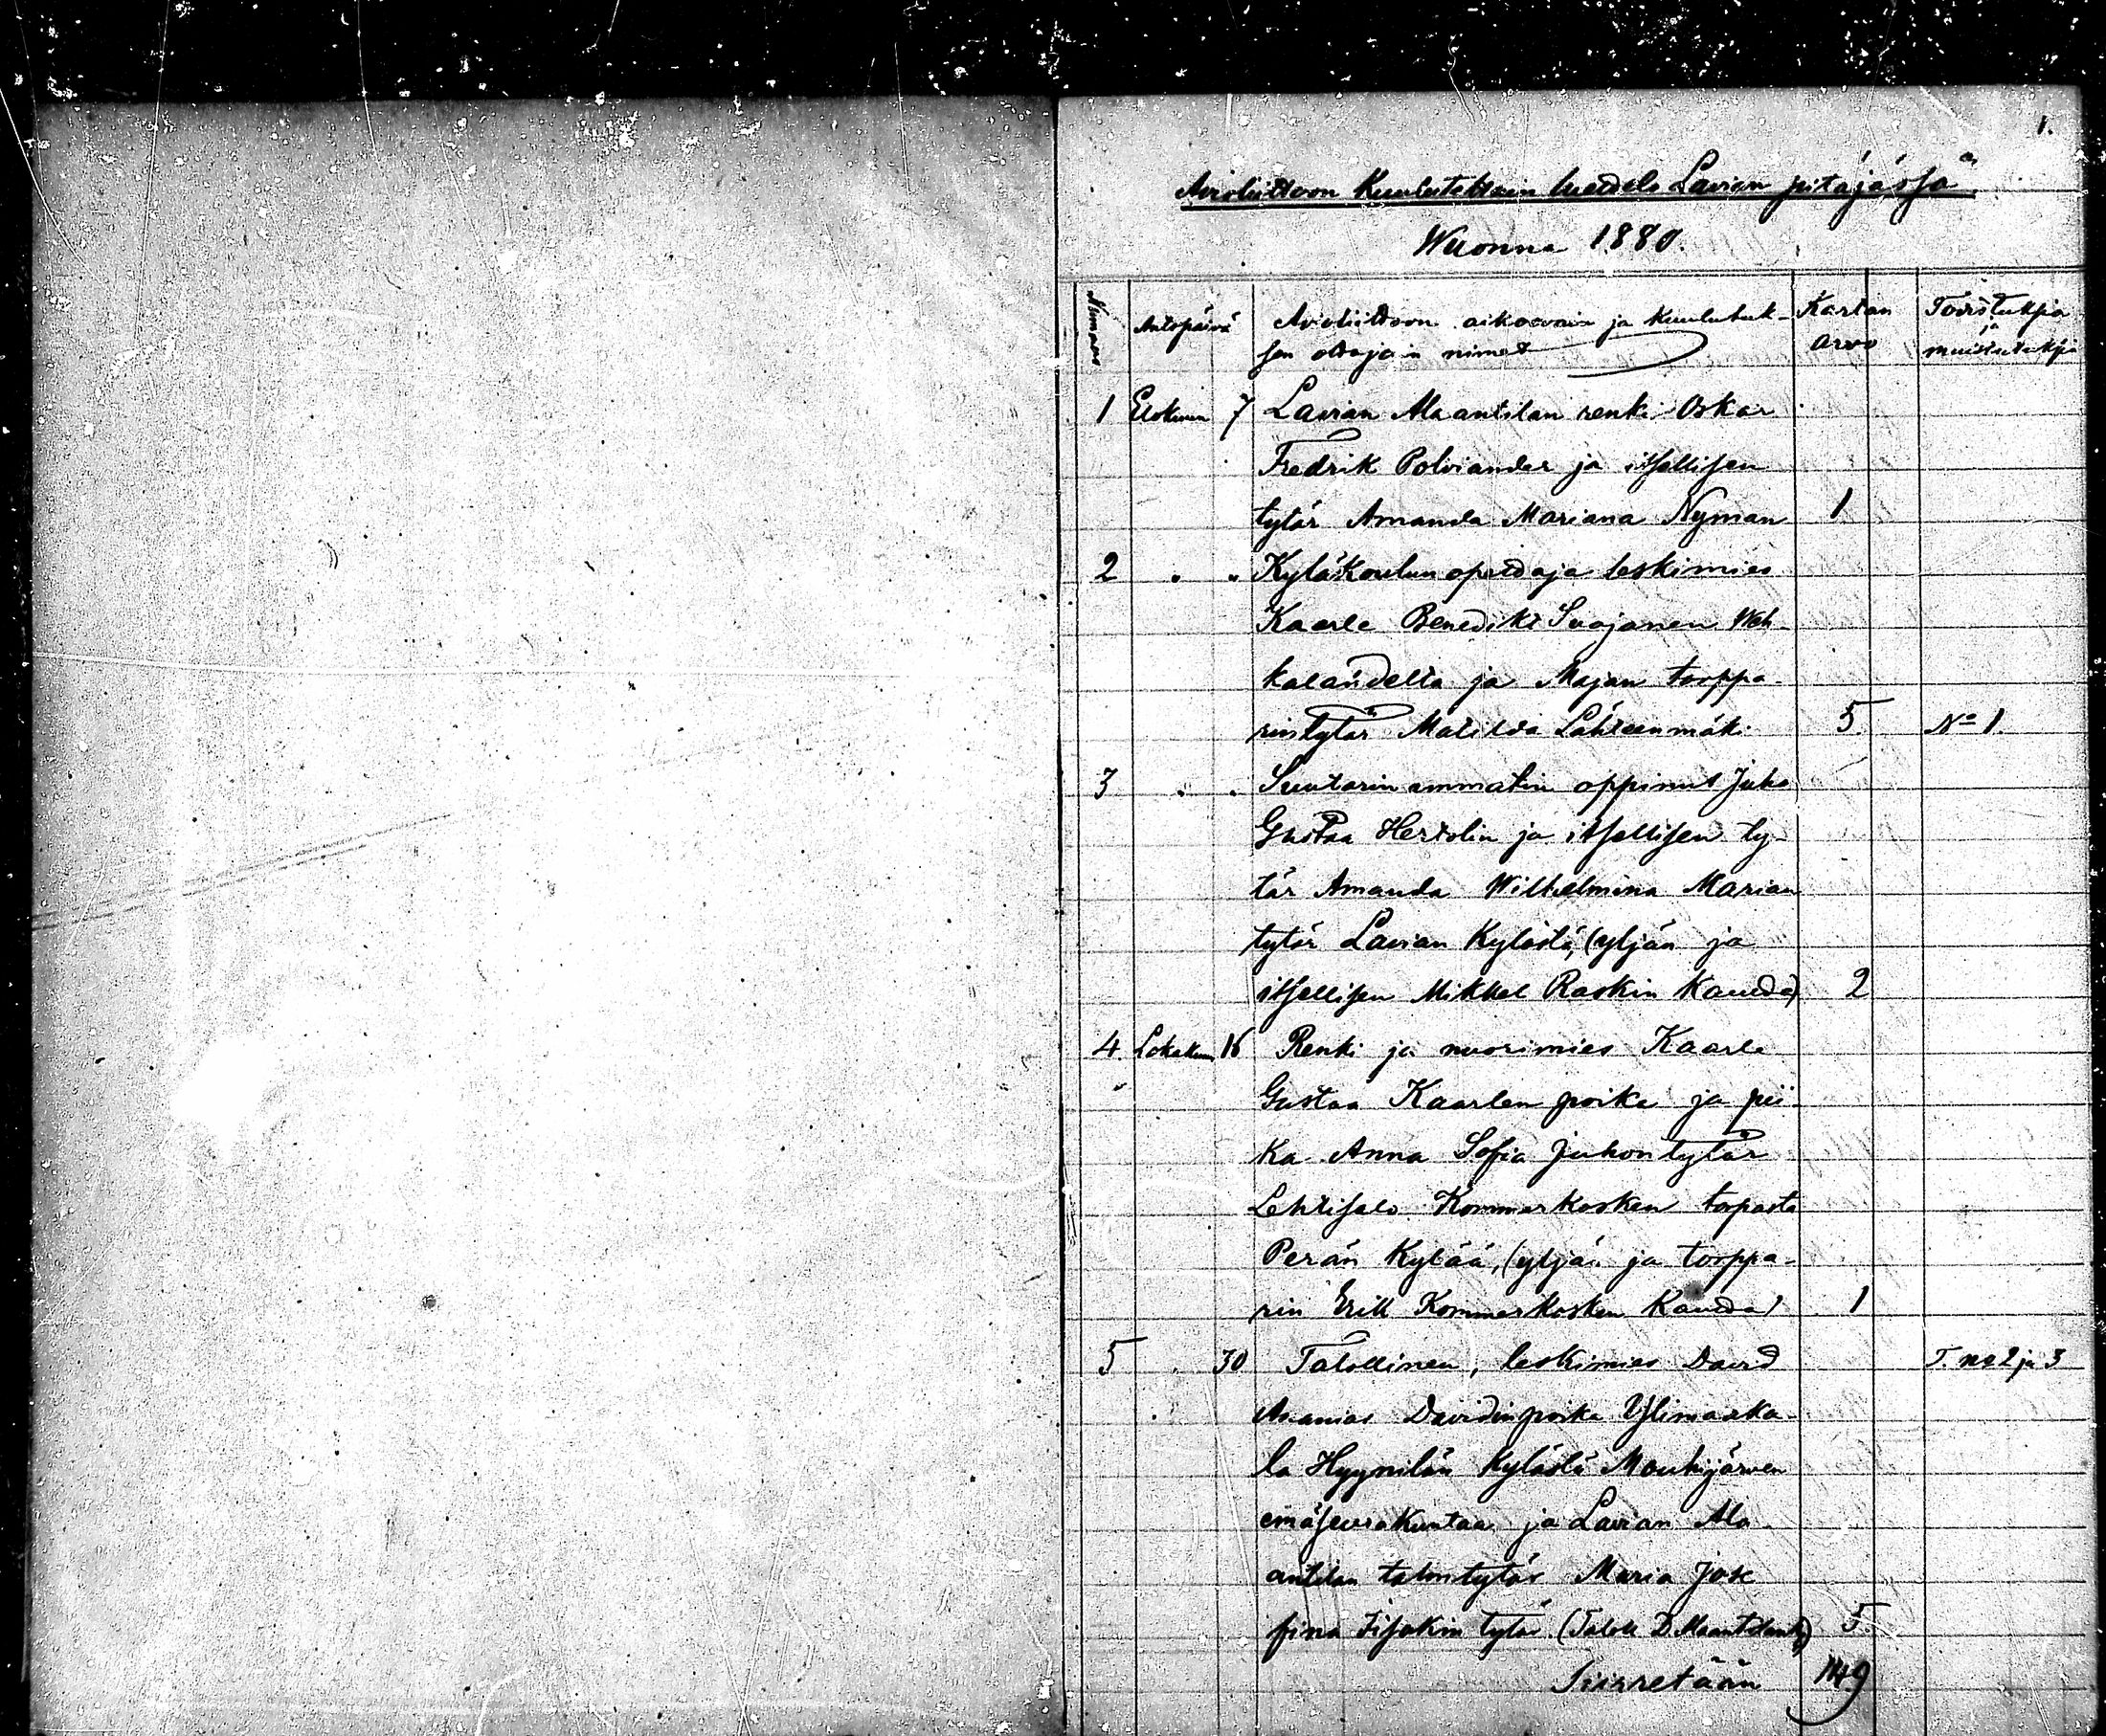 1.
Avioliittoon Kuulutettain luettelo Lavian pitäjässä
Wuonna 1880.
Numero Antopäivä Avioliittoon aikoovain ja kuulutuk- Kartan Toistuksia
sen ottajain nimet arvo ja muistutuksia
1 Elokuun 7 Lavian Alaantilan renki Oskar
Fredrik Polviander ja itsellisen
tytär Amanda Mariana Nyman 1
2 " " Kyläkoulunopettaja leskimies
Kaarle Benedikt Suojanen Weh-
kalahdelta ja Majan torppa-
rintytär Matilda Lähteenmäki 5. No 1.
3 " " Suutarin ammatin oppinut Juho
Gustaa Hertolin ja itsellisen ty-
tär Amanda Wilhelmina Marian
tytär Lavian Kylästä, (yljän ja
itsellisen Mikkel Raskin kautta) 2
4. Lokakuun 16 Renki ja nuorimies Kaarle
Gustaa Kaarlen poika ja pii-
ka Anna Sofia Juhontytär
Lehtisalo Kommerkosken torpasta
Perän Kylää, (ylján ja torppa-
rin Erik Kommerkosken kautta) 1
5 " 30 Talollinen, leskimies David
Ananias Davidinpoika Ylimarka-
la Hyynilän Kylästä Mouhijärven
emäseurakuntaa ja Lavian Ala-
antilan talontytär Maria Jose
fina Iisakin tytär. (Talol. D. 5.
Siirretään 149
T. no 2 ja 3